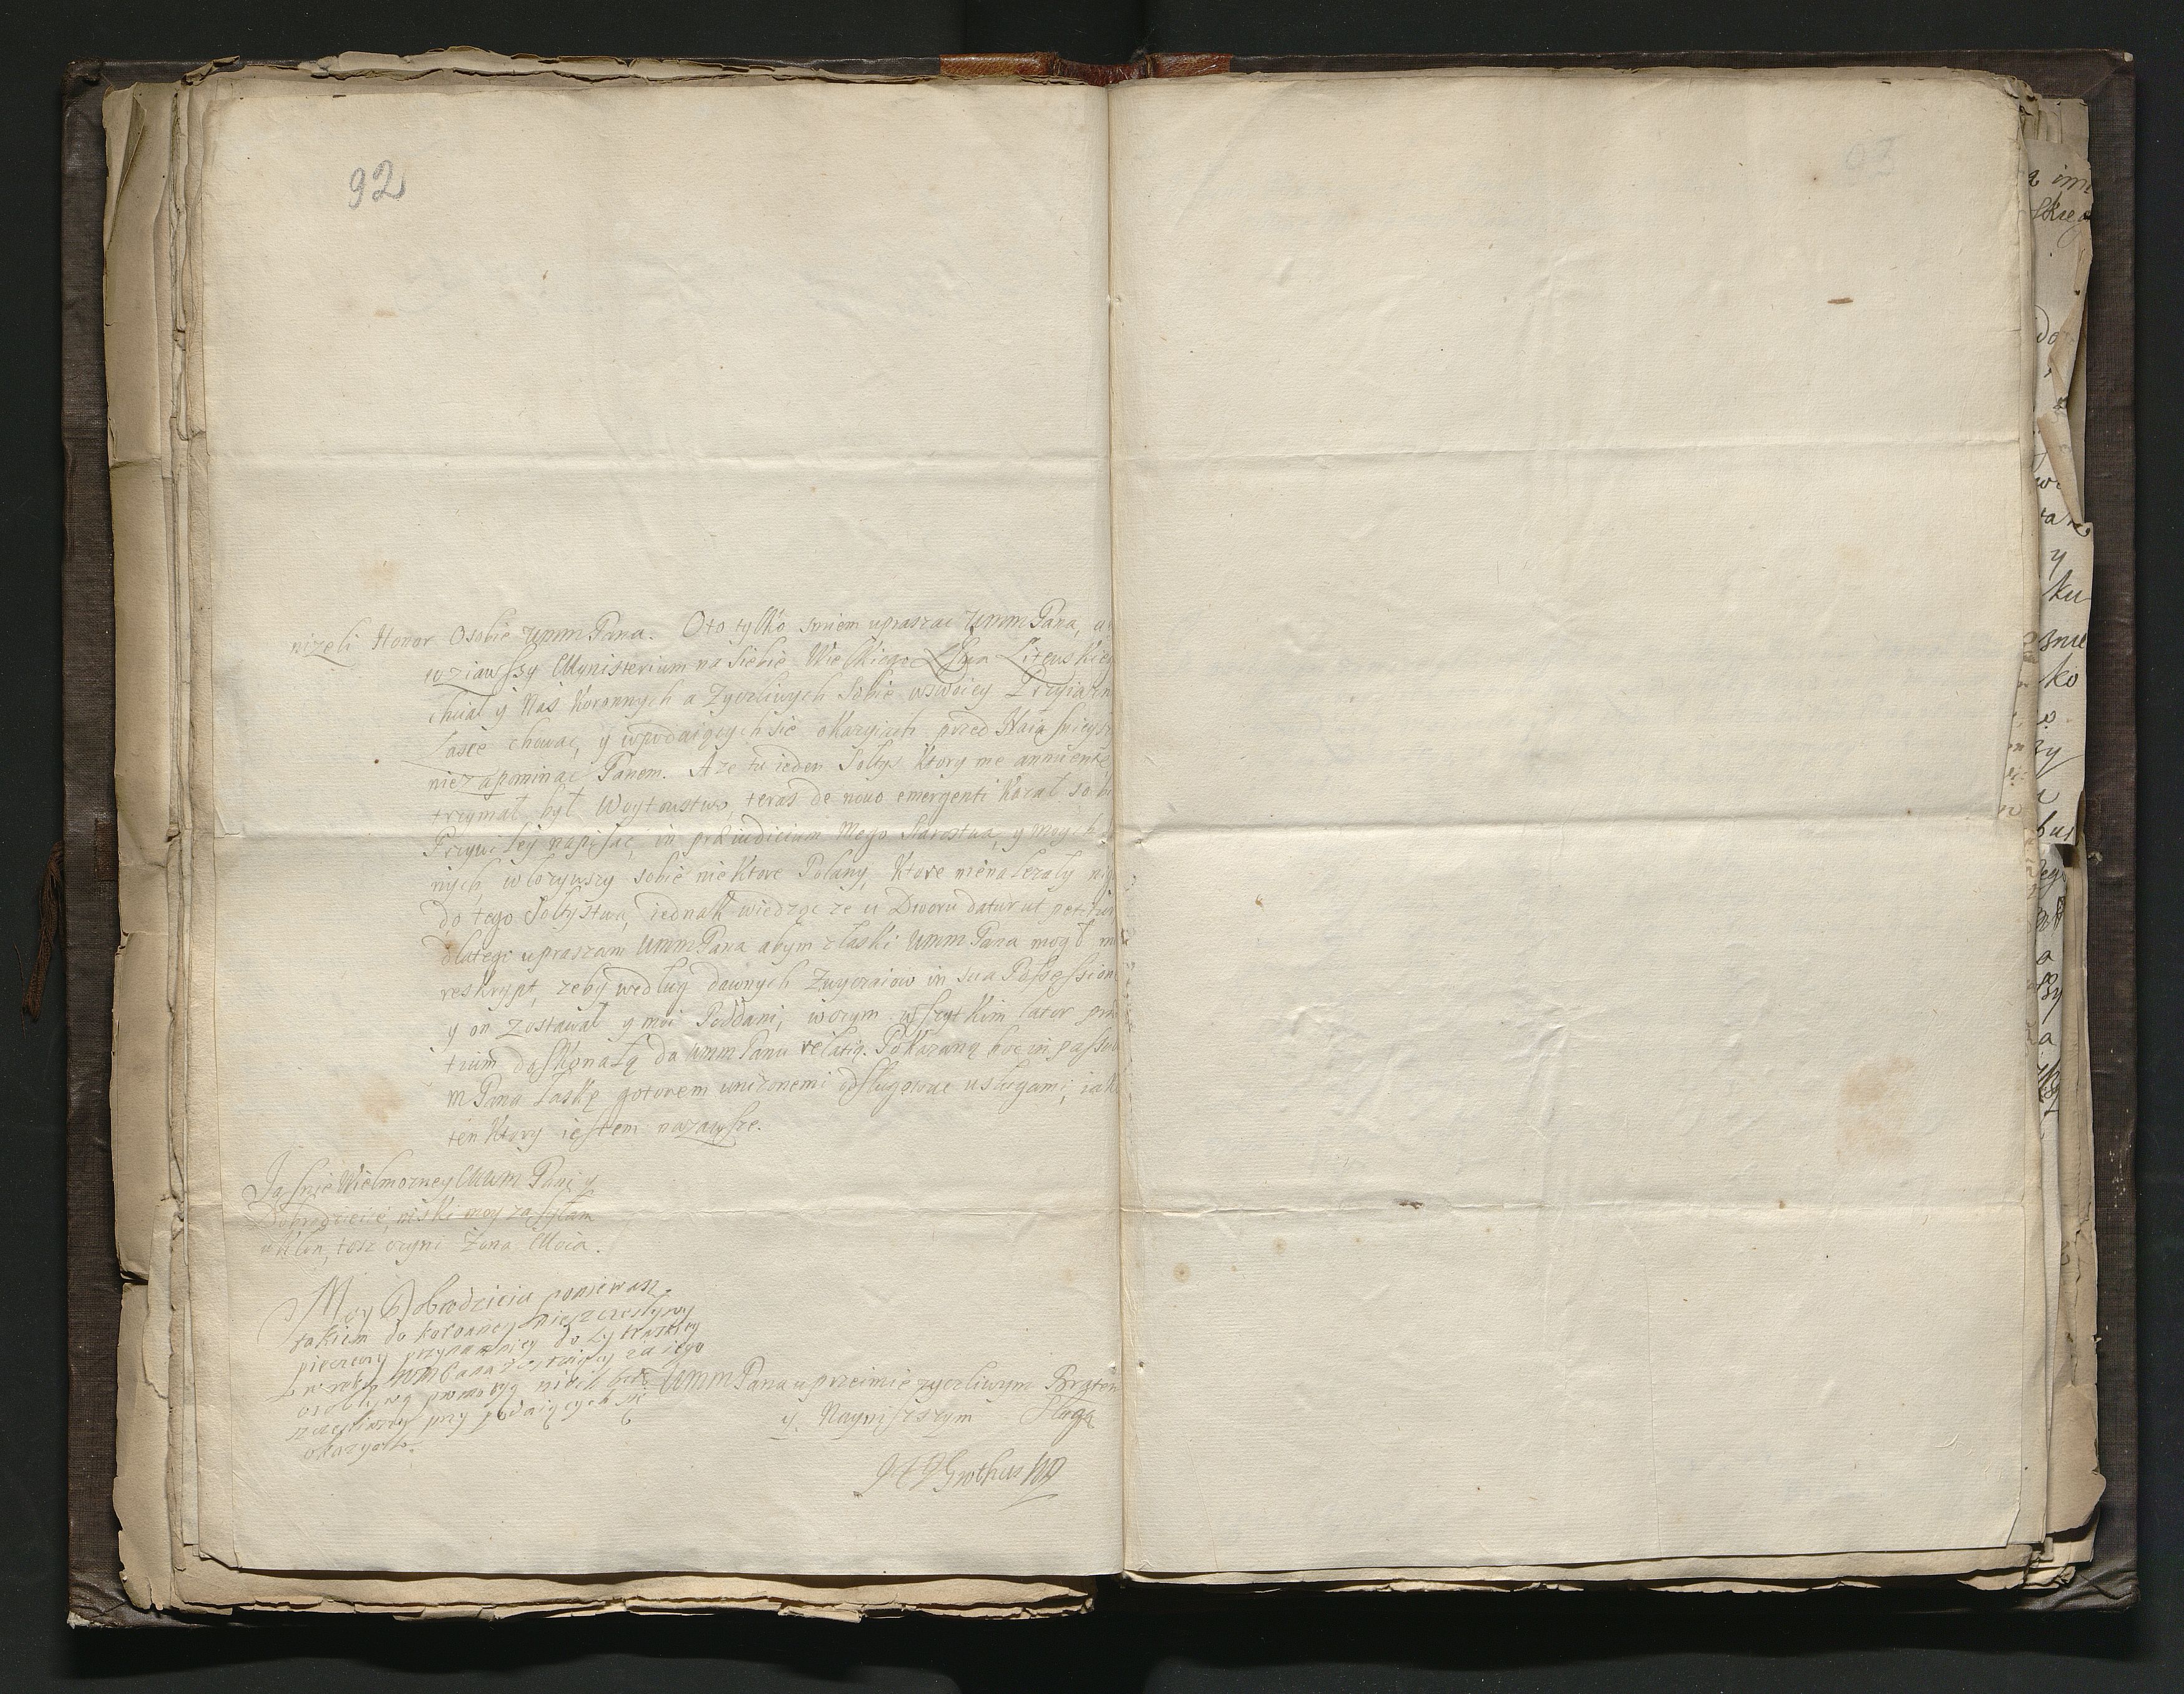 92
niżeli Honor Osobie WmmPana. Oto tylko smiem upraszac WmmPana,
wziawszy Mynisterium na Siebie Wielkiego
chciał y Nas Koronnych a Zyczliwych Sobie wswoiey
Łasce chowac, y wpodaiących się okazyach przed Naią
niezapominac Panem. A że tu ieden Sołtys Ktory me annuente
trzymał był Woytowstwo, teras de nouo emergenti Kazał
Przywiley napisac, in praeiudicium Mego Starostwa, y moych
nych, włożywszy sobie niektore Polany, Ktore nienalezały
do tego Sołtystwa, iednak wiedząc ze u Dworu datur ut petitur
dlatego upraszam WmmPana abym złaski WmmPana mogł
reskrypt, zeby według dawnych Zwyczaiow in sua Possession
y on zostawał y moi Poddani, wczym wszytkim lator
trium doskonałą da WmmPanu relatią. Pokazaną hoc in passu
mPana Łaskę gotowem unizonemi odsługowac usługami, iak
ten Ktory iestem nazawsze.
JaśnieWielmozney MwmPani y
Dobrodzieice, niski moy zasyłam
ukłon, tosz czyni Zona Moia.
Moy Dobrodzieiu poniewasz
takiem do koronney nieszczesliwy
pieczeci przynamniey do Litewskiey
w reku WmPana zostaiącey za iego
osobliwą promotią niech będę
szczesliwszy przy podaiących się
okazyach.
WmmPana uprzeimie zyczliwym Bratem
y Nayniszszym Sługą
Grothus